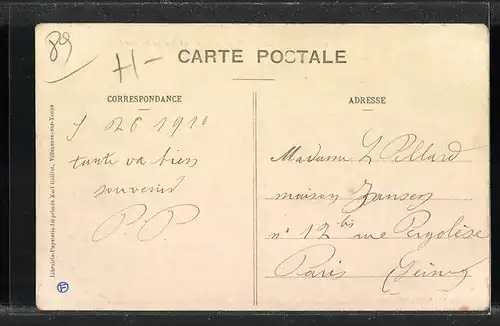 89
H-
CARTE POSTALE
CORRESPONDANCE
ADRESSE
1910
tante va bien
souvenir
P. P.
Madame L Pillard
maison Jansen
n° 12 bis rue Pergolèse
Paris (Seine)
Librairie-Papeterie-Imprimerie Karl Guillot, Villeneuve-sur-Yonne